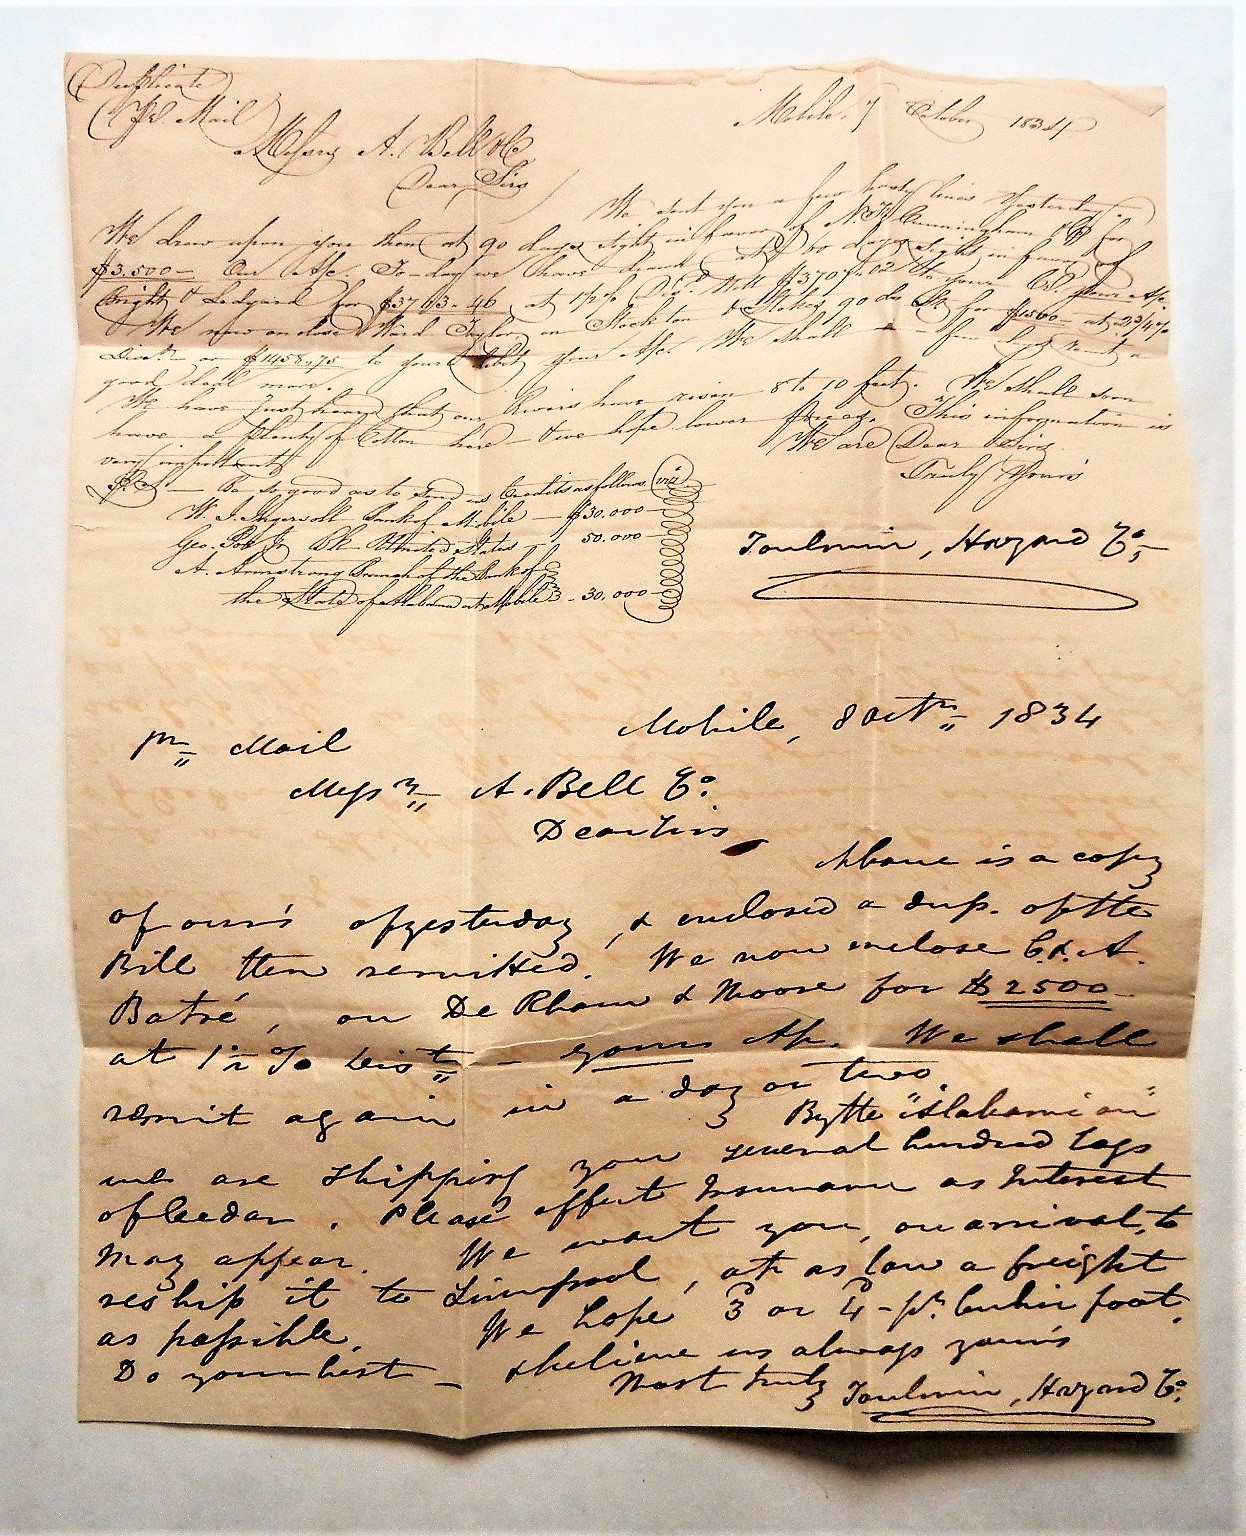 Duplicate
Pr. Mail
Mobile, 7 October 1834
Messrs A. Bell & Co
Dear Sirs
We sent you a few hasty lines yesterday.
We drew upon you then at 90 days sight in favor of N. Cunningham & Co for
$3.500 — Our A/c. To-day we have drawn at 60 days sight in favor of
Wright & Ledyard for $3763.46 at 1½% Dist. Nett to your Cr. your A/c.
We now enclose Ward Taylor on Stockton & Stokes 90 ds St. for $1500 — at 2¾%
Disct. or $1458.75 to your debit your A/c. We shall in a few days remit a
good deal more.
We have just heard that our Rivers have risen 8 to 10 feet. We shall soon
have a plenty of Cotton here — & we hope lower prices. This information is
very important.
We are Dear Sirs
Truly Yours
P.S. — Be so good as to send us Credits as follows viz
W. J. Ingersoll Bank of Mobile — $30.000 —
Geo. Poe Jr. Bk United States — 50.000 —
A. Armstrong Branch of the Bank of
the State of Alabama at Mobile — 30.000 —
Toulmin, Hazard Co,
Mobile, 8 Octr. 1834
pr. Mail
Messrs. A. Bell & Co.
Dear Sirs
Above is a copy
of our's of yesterday, & enclosed a dup. of the
Bill then remitted. We now enclose C. & A.
Batré, on De Rham & Moore for $2500
at 1½% Dist. — yours A/c. We shall
remit again in a day or two.
By the "Alabamian"
we are shipping you several hundred logs
of Cedar. Please effect Insurance as Interest
may appear. We want you, on arrival, to
reship it to Liverpool, at as low a freight
as possible. We hope 3d or 4d — pr. Cubic foot.
Do your best — & believe us always your's
Most truly Toulmin, Hazard Co.